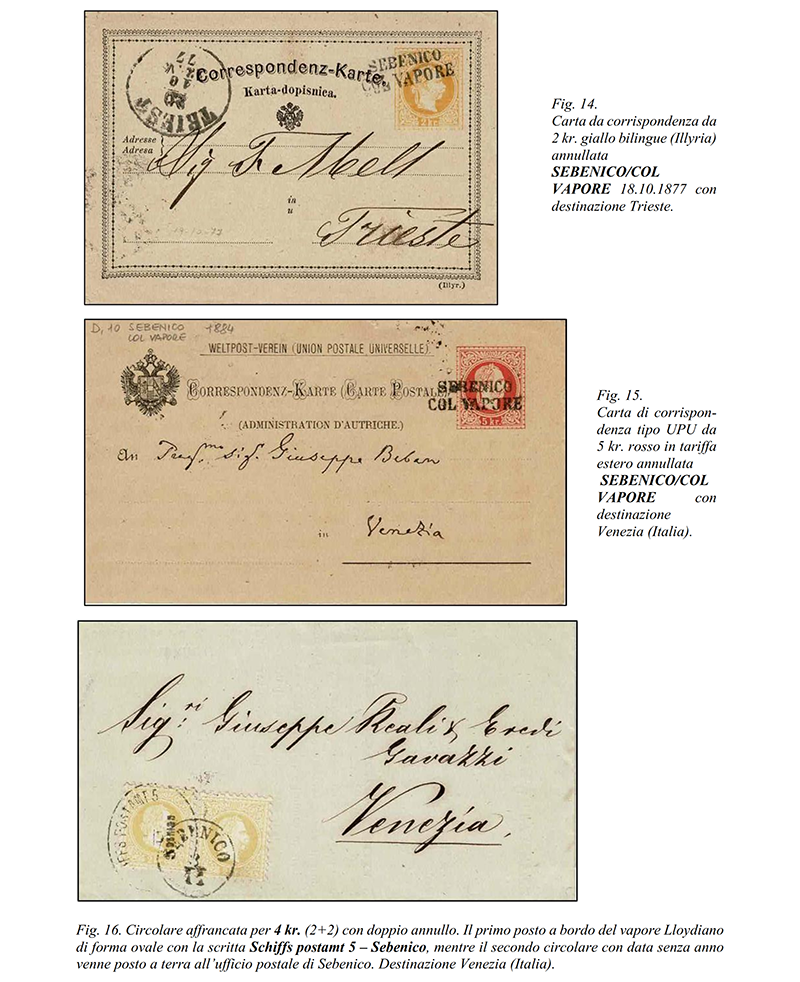 Correspondenz-Karte.
Karta-dopisnica.
SEBENICO
COL VAPORE
TRIEST
77
Adresse
Adresa
Sig F. Melt
in
u
Trieste
(Illyr.)
Fig. 14.
Carta da corrispondenza da
2 kr. giallo bilingue (Illyria)
annullata
SEBENICO/COL
VAPORE 18.10.1877 con
destinazione Trieste.
D, 10 SEBENICO 1884
COL VAPORE
WELTPOST-VEREIN (UNION POSTALE UNIVERSELLE).
CORRESPONDENZ-KARTE (CARTE POSTALE)
(ADMINISTRATION D'AUTRICHE.)
SEBENICO
COL VAPORE
5 kr.
An Prof. sig. Giuseppe Beban
in Venezia
Fig. 15.
Carta di corrispon-
denza tipo UPU da
5 kr. rosso in tariffa
estero annullata
SEBENICO/COL
VAPORE con
destinazione
Venezia (Italia).
Sigri Giuseppe Reali & Eredi
Gavazzi
Venezia.
SEBENICO
Fig. 16. Circolare affrancata per 4 kr. (2+2) con doppio annullo. Il primo posto a bordo del vapore Lloydiano
di forma ovale con la scritta Schiffs postamt 5 – Sebenico, mentre il secondo circolare con data senza anno
venne posto a terra all'ufficio postale di Sebenico. Destinazione Venezia (Italia).